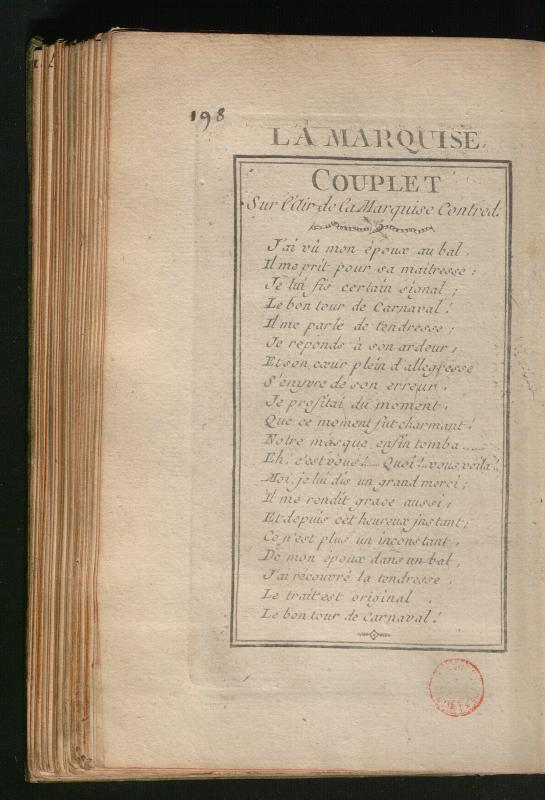 198
LA MARQUISE.
COUPLET
Sur l'Air de la Marquise Contred:
J'ai vû mon époux au bal,
Il me prit pour sa maitresse:
Je lui fis certain signal;
Le bon tour de Carnaval!
Il me parle de tendresse;
Je reponds à son ardeur,
Et son cœur plein d'allegresse
S'enyvre de son erreur.
Je profitai du moment,
Que ce moment fut charmant.
Notre masque enfin tomba.....
Eh! c'est vous!.... Quoi!..vous voila!
Moi, je lui dis un grand merci;
Il me rendit grace aussi;
Et depuis cet heureux jnstant;
Ce n'est plus un inconstant.
De mon époux dans un bal,
J'ai recouvré la tendresse.
Le trait est original
Le bon tour de Carnaval!